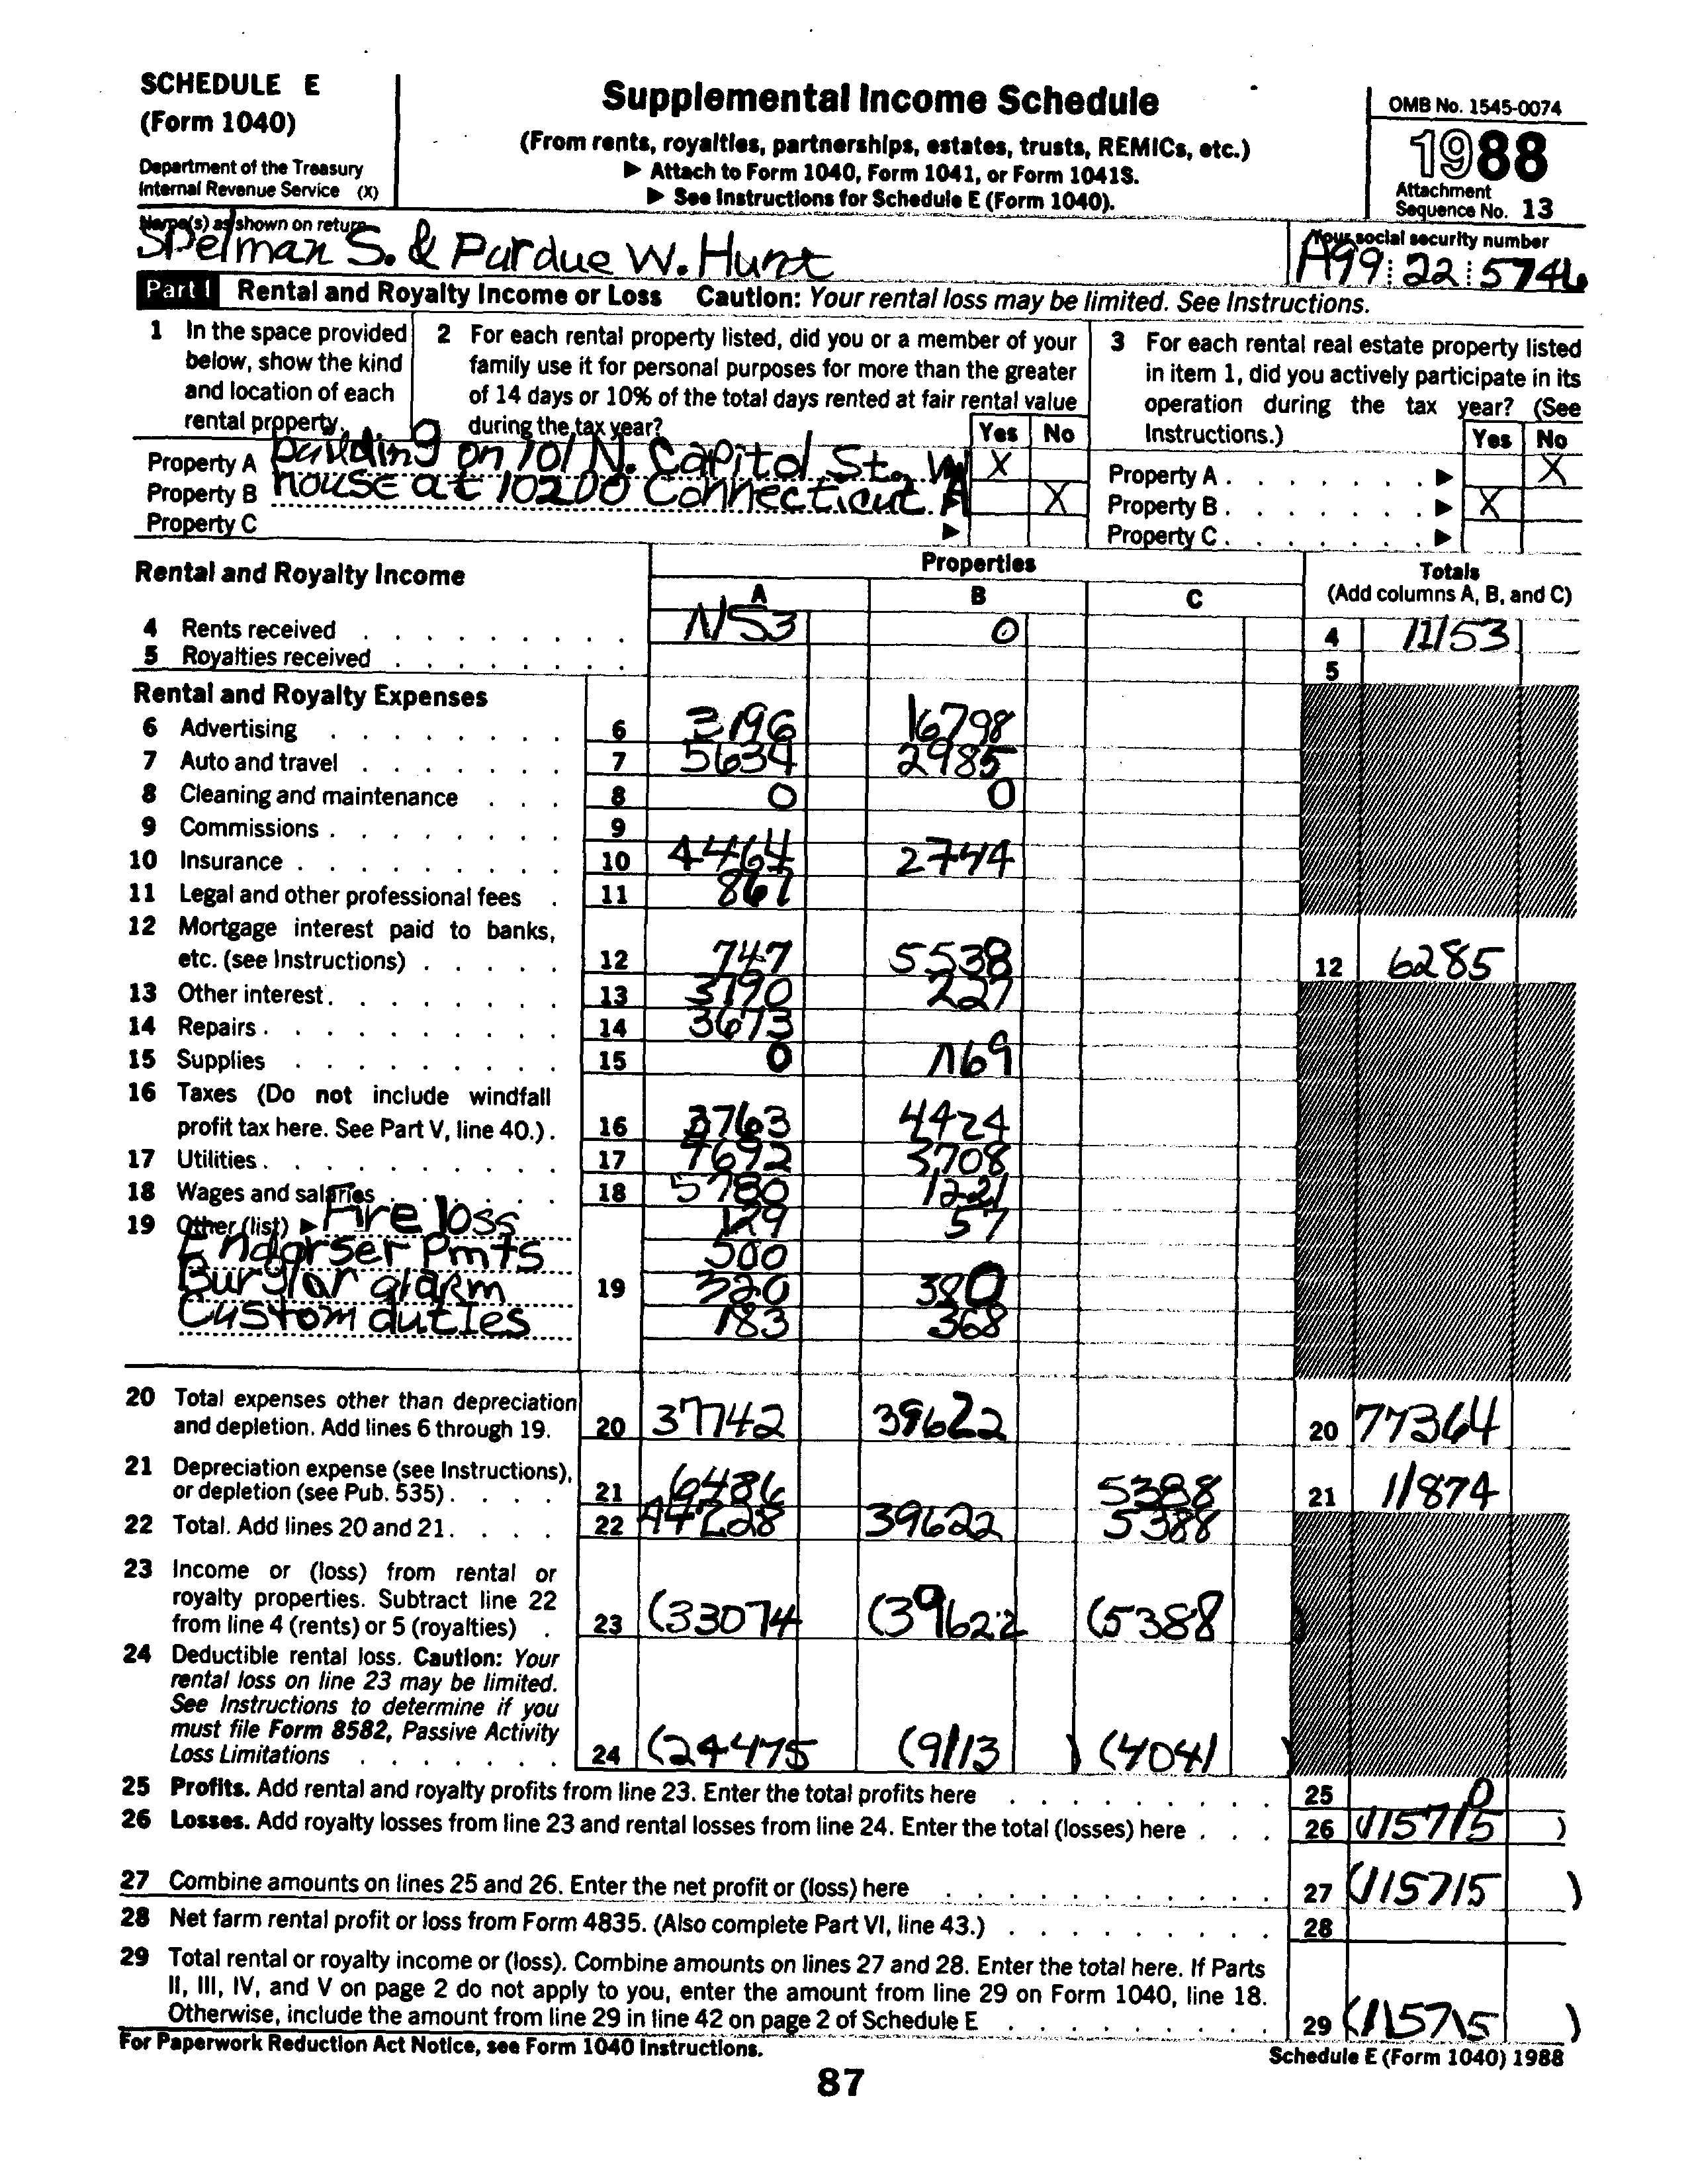 SCHEDULE E
(Form 1040)
Department of the Treasury
Internal Revenue Service (X)
Supplemental Income Schedule
(From rents, royalties, partnerships, estates, trusts, REMICs, etc.)
▶ Attach to Form 1040, Form 1041, or Form 1041S.
▶ See Instructions for Schedule E (Form 1040).
OMB No. 1545-0074
1988
Attachment
Sequence No. 13
Name(s) as shown on return
Spelman S. & Purdue W. Hunt
Your social security number
A99 22 5746
Part I Rental and Royalty Income or Loss Caution: Your rental loss may be limited. See Instructions.
1 In the space provided below, show the kind and location of each rental property.
2 For each rental property listed, did you or a member of your family use it for personal purposes for more than the greater of 14 days or 10% of the total days rented at fair rental value during the tax year?
Yes No
3 For each rental real estate property listed in item 1, did you actively participate in its operation during the tax year? (See Instructions.)
Yes No
Property A building on 101 N. Capitol St. X
Property A . . . . . . . ▶ X
Property B house at 10200 Connecticut A X
Property B . . . . . . . ▶ X
Property C ▶
Property C . . . . . . . ▶
Rental and Royalty Income
Properties
A B C
Totals
(Add columns A, B, and C)
4 Rents received 0 4 11153
5 Royalties received 5
Rental and Royalty Expenses
6 Advertising 6 3196 16798
7 Auto and travel 7 5634 2985
8 Cleaning and maintenance 8 0 0
9 Commissions 9
10 Insurance 10 4464 2744
11 Legal and other professional fees 11 867
12 Mortgage interest paid to banks,
etc. (see Instructions) 12 747 5538 12 6285
13 Other interest 13 3790 227
14 Repairs 14 3673
15 Supplies 15 0 1169
16 Taxes (Do not include windfall
profit tax here. See Part V, line 40.) 16 3763 4424
17 Utilities 17 4692 3708
18 Wages and salaries 18 5780 1221
19 Other (list) ▶ Fire loss 129 57
Endorser Pmts 500
Burglar alarm 19 320 380
Custom duties 183 368
20 Total expenses other than depreciation
and depletion. Add lines 6 through 19. 20 37742 39622 20 77364
21 Depreciation expense (see Instructions),
or depletion (see Pub. 535) 21 6486 5388 21 11874
22 Total. Add lines 20 and 21 22 44228 39622 5388
23 Income or (loss) from rental or
royalty properties. Subtract line 22
from line 4 (rents) or 5 (royalties) 23 (33074 (39622 (5388 )
24 Deductible rental loss. Caution: Your
rental loss on line 23 may be limited.
See Instructions to determine if you
must file Form 8582, Passive Activity
Loss Limitations 24 (24475 (9113 ) (4041 )
25 Profits. Add rental and royalty profits from line 23. Enter the total profits here 25 0
26 Losses. Add royalty losses from line 23 and rental losses from line 24. Enter the total (losses) here 26 (115715 )
27 Combine amounts on lines 25 and 26. Enter the net profit or (loss) here 27 (115715 )
28 Net farm rental profit or loss from Form 4835. (Also complete Part VI, line 43.) 28
29 Total rental or royalty income or (loss). Combine amounts on lines 27 and 28. Enter the total here. If Parts
II, III, IV, and V on page 2 do not apply to you, enter the amount from line 29 on Form 1040, line 18.
Otherwise, include the amount from line 29 in line 42 on page 2 of Schedule E 29 (115715 )
For Paperwork Reduction Act Notice, see Form 1040 Instructions.
Schedule E (Form 1040) 1988
87